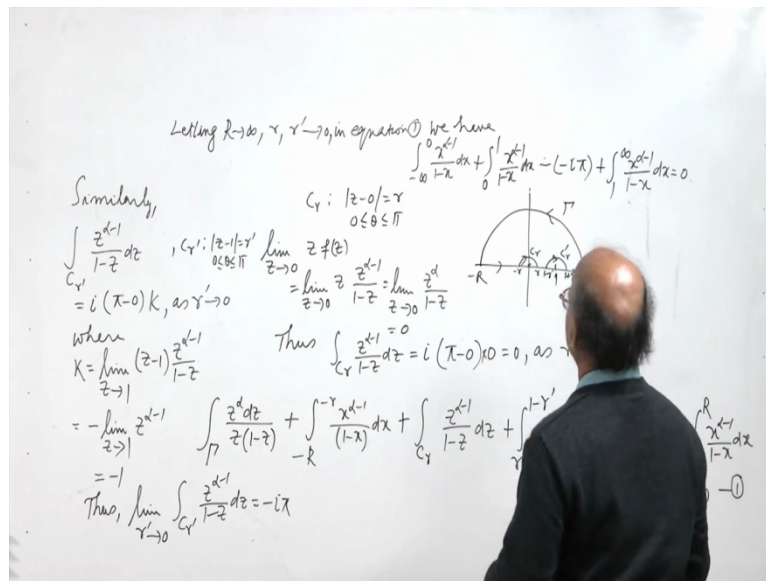 Letting R→∞, r, r'→0, in equation ① we have
∫_{-∞}^{0} x^{α-1}/(1-x) dx + ∫_{0}^{1} x^{α-1}/(1-x) dx - (-iπ) + ∫_{1}^{∞} x^{α-1}/(1-x) dx = 0
Similarly,
∫_{C_{r'}} z^{α-1}/(1-z) dz, C_{r'}: |z-1|=r' 0≤θ≤π
= i(π-0)K, as r'→0
where
K = lim_{z→1} (z-1) z^{α-1}/(1-z)
= -lim_{z→1} z^{α-1}
= -1
Thus, lim_{r'→0} ∫_{C_{r'}} z^{α-1}/(1-z) dz = -iπ
C_r: |z-0|=r
0≤θ≤π
lim_{z→0} z f(z)
= lim_{z→0} z z^{α-1}/(1-z) = lim_{z→0} z^α/(1-z)
= 0
Thus ∫_{C_r} z^{α-1}/(1-z) dz = i(π-0)×0 = 0, as
Γ
C_r C_r'
-R -r r
∫_Γ z^α dz/(z(1-z)) + ∫_{-R}^{-r} x^{α-1}/(1-x) dx + ∫_{C_r} z^{α-1}/(1-z) dz + ∫_{r}^{1-r'}
∫^{R} x^{α-1}/(1-x) dx
-①